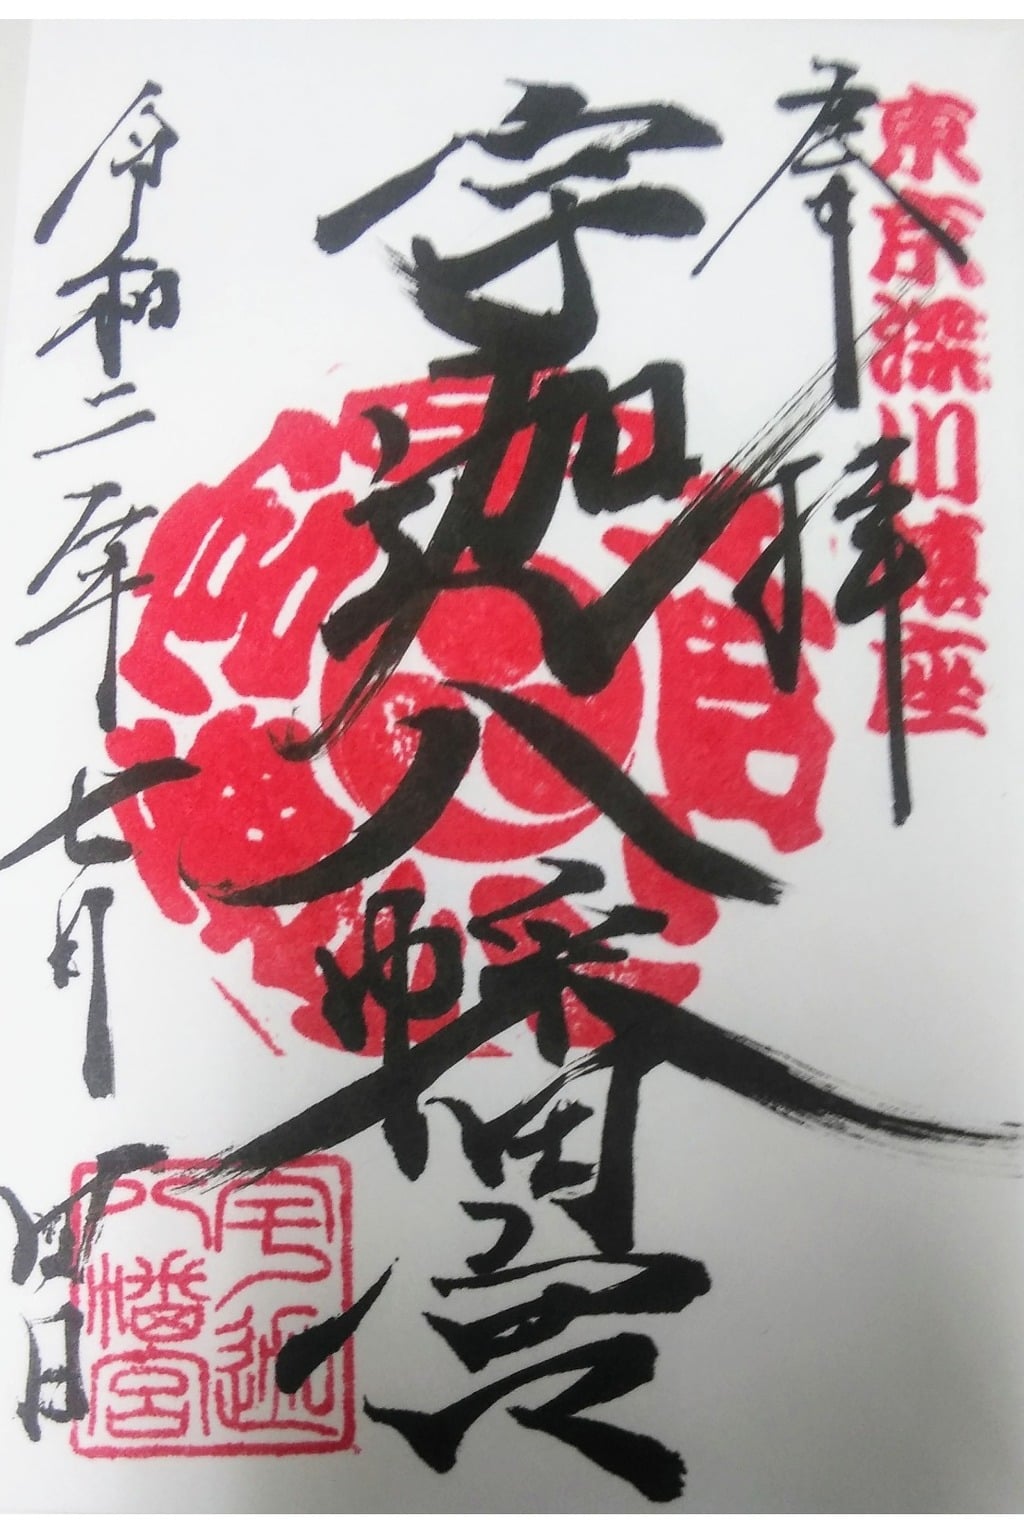 東京深川鎮座
奉拝
宇迦八幡宮
令和二年七月十四日
宇迦
八幡宮